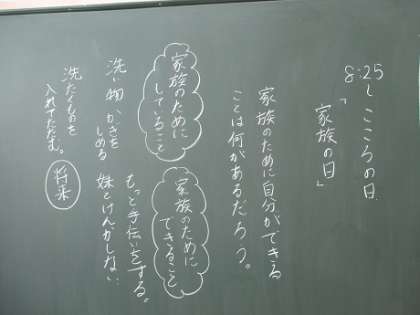 8:25〜こころの日
「家族の日」
家族のために自分ができる
ことは何があるだろう。
家族のために
していること
洗い物 かぎを
しめる
洗たくものを
入れてたたむ。
家族のために
できること
もっと手伝いをする。
妹とけんかしない
将来